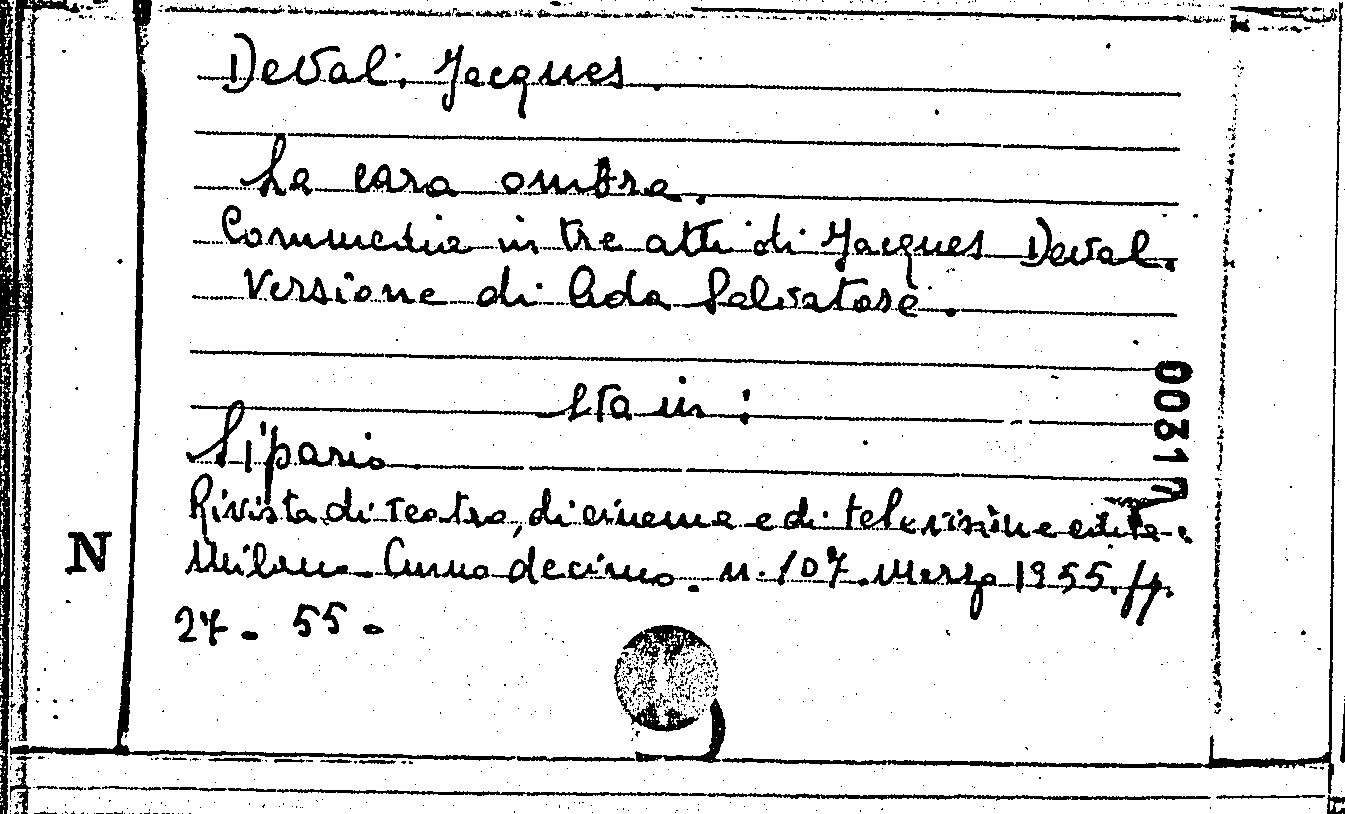 Deval. Jacques.
La cara ombra.
Commedia in tre atti di Jacques Deval.
Versione di Ada Salvatore.
Sta in:
00317
Sipario
Rivista di teatro, di cinema e di televisione
N
Milano. Anno decimo. n. 107. Marzo 1955. pp.
27 - 55 -